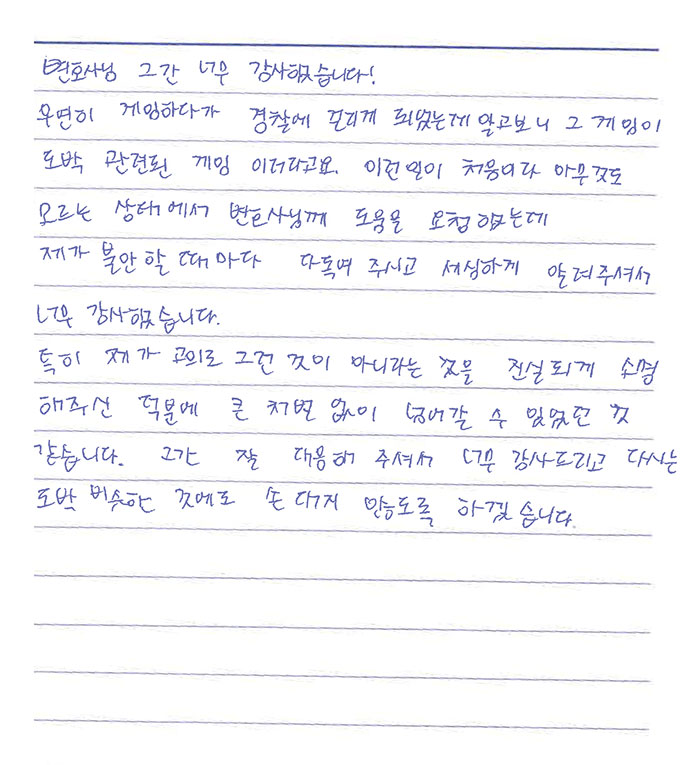 변호사님 그간 너무 감사했습니다!
우연히 게임하다가 경찰에 걸리게 되었는데 알고보니 그 게임이
도박 관련된 게임 이더라고요. 이런일이 처음이라 아무것도
모르는 상태에서 변호사님께 도움을 요청했는데
제가 불안할 때마다 다독여 주시고 세심하게 알려주셔서
너무 감사했습니다.
특히 제가 고의로 그런 것이 아니라는 것을 진실되게 소명
해주신 덕분에 큰 처벌 없이 넘어갈 수 있었던 것
같습니다. 그간 잘 대응해 주셔서 너무 감사드리고 다시는
도박 비슷한 것에도 손 대지 않도록 하겠습니다.